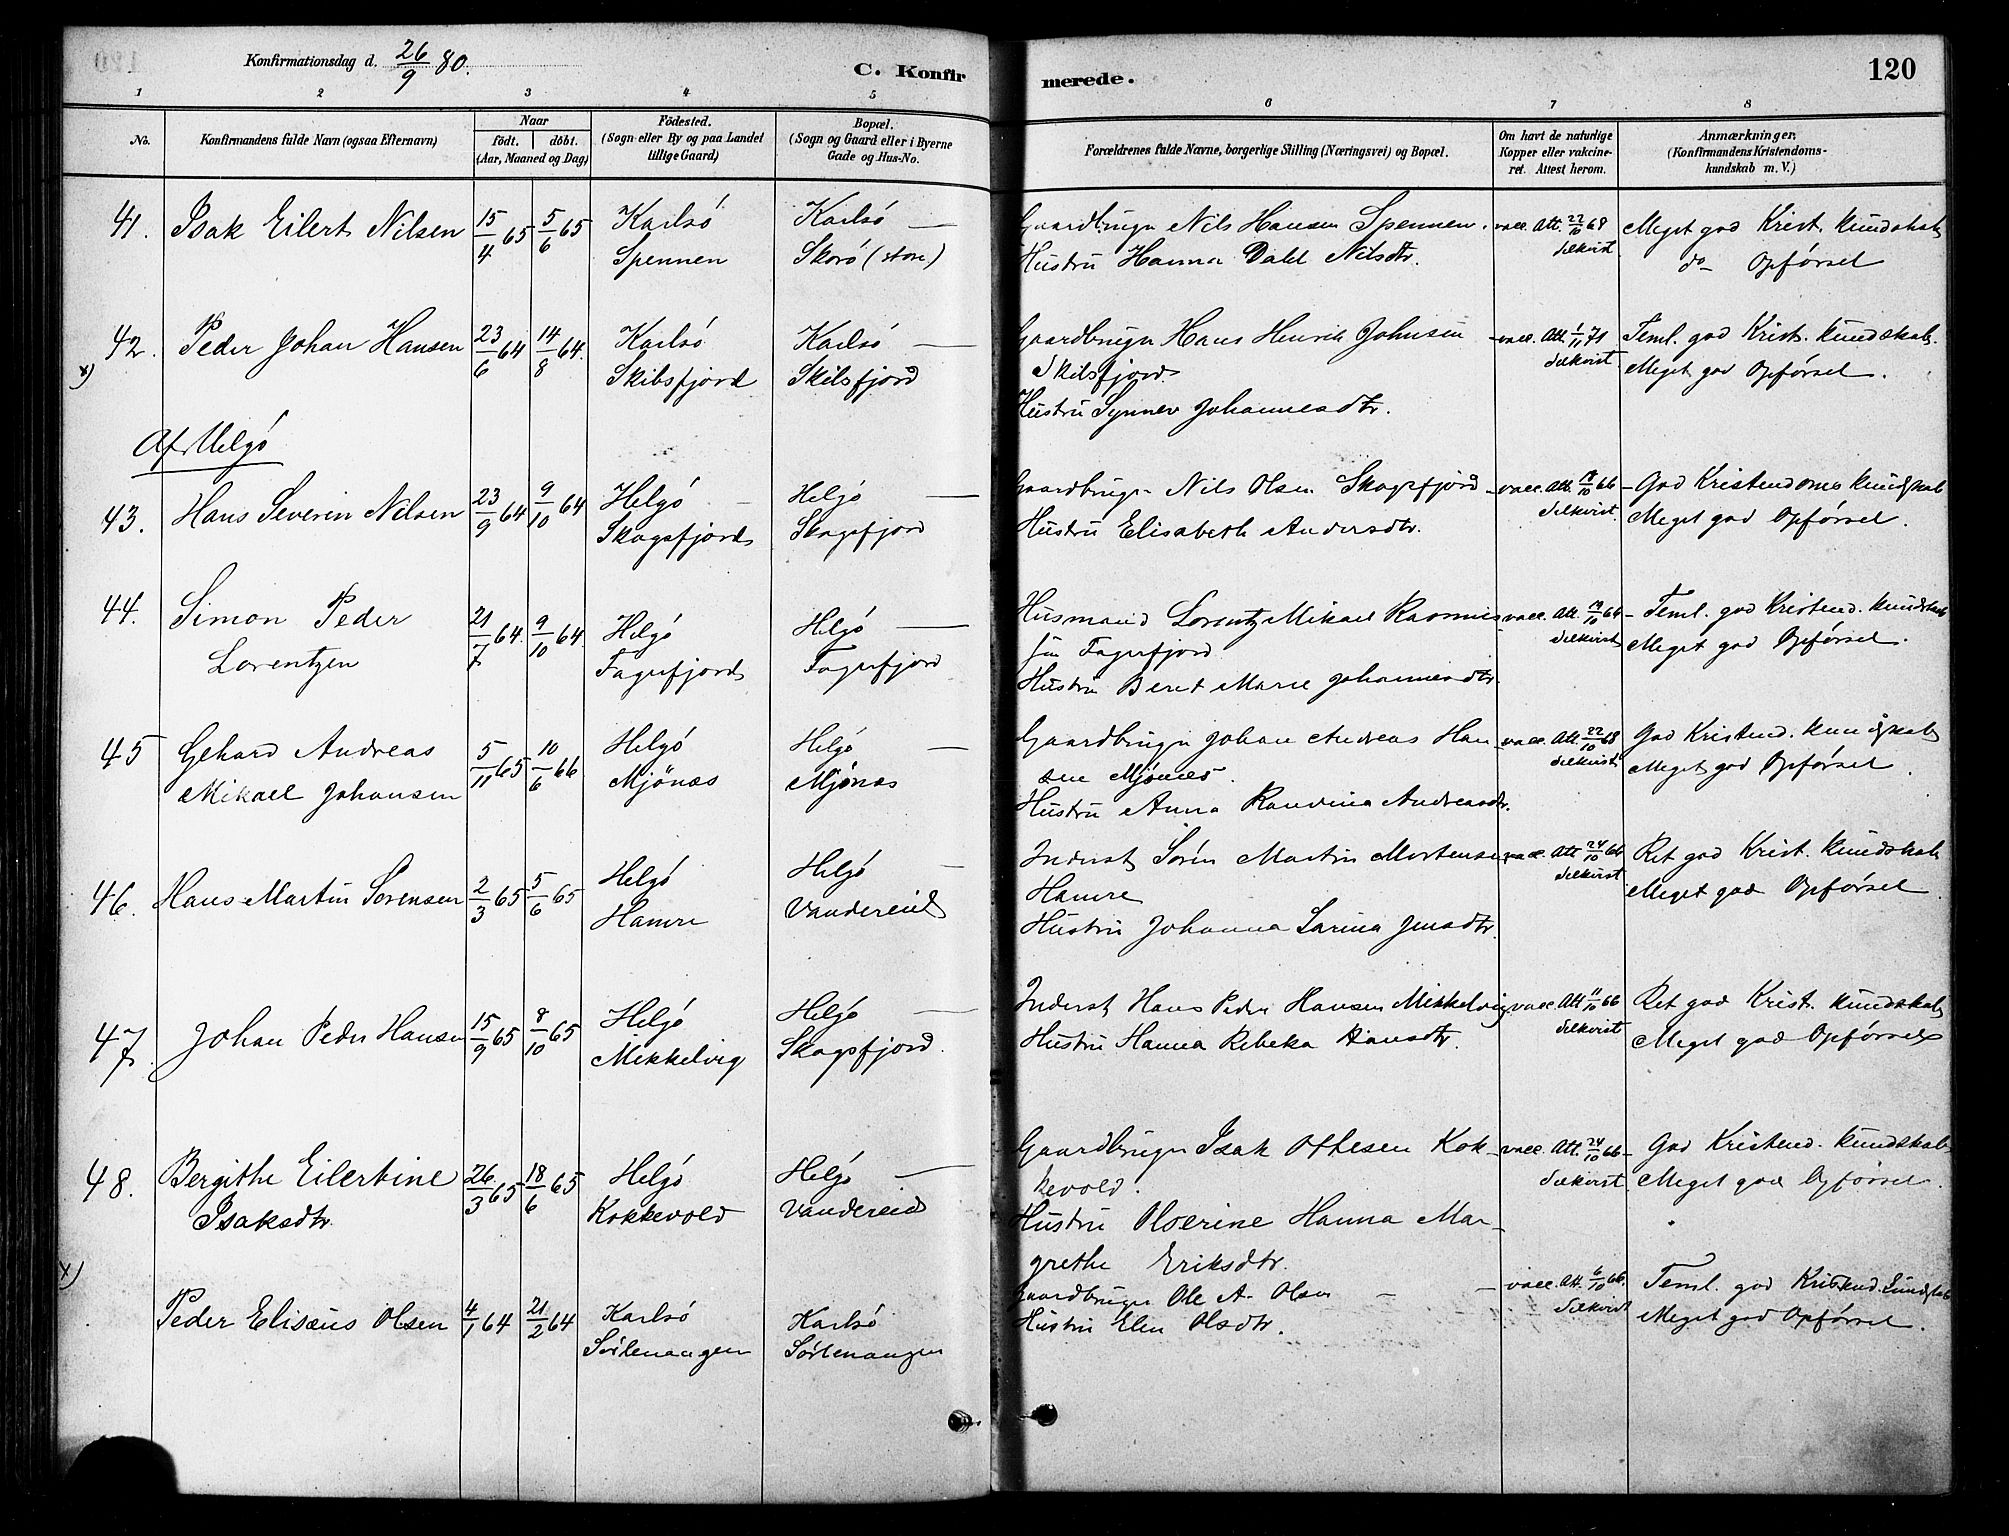 Konfirmationsdag d. 26/9 80.
C. Konfirmerede.
120
1 2 3 4 5 6 7 8
No.
Konfirmandens fulde Navn (ogsaa Efternavn)
Naar
födt. döbt.
(Aar, Maaned og Dag)
Födested.
(Sogn eller By og paa Landet
tillige Gaard)
Bopæl.
(Sogn og Gaard eller i Byerne
Gade og Hus-No.
Forældrenes fulde Navne, borgerlige Stilling (Næringsvei) og Bopæl.
Om havt de naturlige
Kopper eller vakcine-
ret. Attest herom.
Anmærkninger.
(Konfirmandens Kristendoms-
kundskab m. V.)
41. Isak Eilert Nilsen 15/4 65 5/6 65 Karlsö Karlsö — Gaardbruger Nils Hansen Spennen. vacc. Att. 22/10 68 Meget god Krist. kundskab
Spennen Skorö (store) Hustru Hanna Dahl Nilsdtr. Selkvist do Opførsel
42. Peder Johan Hansen 23/6 64 14/8 64. Karlsö Karlsö — Gaardbruger Hans Henrik Johnsen vacc. Att. 1/11 71 Teml. god Krist. kundskab.
x) Skibsfjord Skibsfjord Skibsfjord Selkvist Meget god Opførsel.
Hustru Synnev Johannesdtr.
Af Helgö
43. Hans Severin Nilsen 23/9 64 9/10 64 Helgö Helgö — Gaardbruger Nils Olsen Skogsfjord vacc. Att. /10 66 God Kristendoms kundskab
Skogsfjord Skogsfjord Hustru Elisabeth Andersdtr. Selkvist. Meget god Opførsel.
44. Simon Peder 21/7 64. 9/10 64. Helgö Helgö — Husmand Lorentz Mikael Rasmus- vacc. Att. /10 66 Teml. god Kristend. kundskab
Lorentzen Fagerfjord Fagerfjord sen Fagerfjord Selkvist Meget god Opførsel.
Hustru Beret Marie Johannesdtr.
45 Gehard Andreas 5/11 65 10/6 66 Helgö Helgö — Gaardbruger Johan Andreas Han- vacc. Att. 22/10 68 God Kristend. kundskab
Mikael Johansen Mjönæs Mjönæs sen Mjönes. Selkvist Meget god Opførsel.
Hustru Anna Randina Andreasdtr.
46. Hans Martin Sörensen 2/3 65 5/6 65 Helgö Helgö — Inderst Sören Martin Mortensen vacc. Att 24/10 66 Ret god Krist. kundskab
Hamre Vandereid Hamre Selkvist Meget god Opførsel
Hustru Johanna Sarina Jensdtr.
47. Johan Peder Hansen 15/9 65 8/10 65 Helgö Helgö — Inderst Hans Peder Hansen Mikkelvig vacc. Att 11/10 66 Ret god Krist. kundskab
Mikkelvig Skogsfjord. Hustru Hanna Rebeka Hansdtr. Selkvist Meget god Opførsel
48. Bergithe Eilertine 26/3 65 18/6 65 Helgö Helgö — Gaardbruger Isak Ottesen Kok- vacc. Att. 24/10 66 God Kristend. kundskab
Isaksdtr. Kokkevold Vandereid kevold. Selkvist Meget god Opførsel.
Hustru Olserine Hanna Mar-
grethe Eriksdtr.
x) Peder Elisæus Olsen 4/1 64 21/2 64 Karlsö Karlsö Gaardbruger Ole A. Olsen — vacc. Att. 6/10 66. Teml. god Kristend. kundskab
Sörlenangen Sörlenangen Hustru Elen Olsdtr. Selkvist Meget god Opførsel.